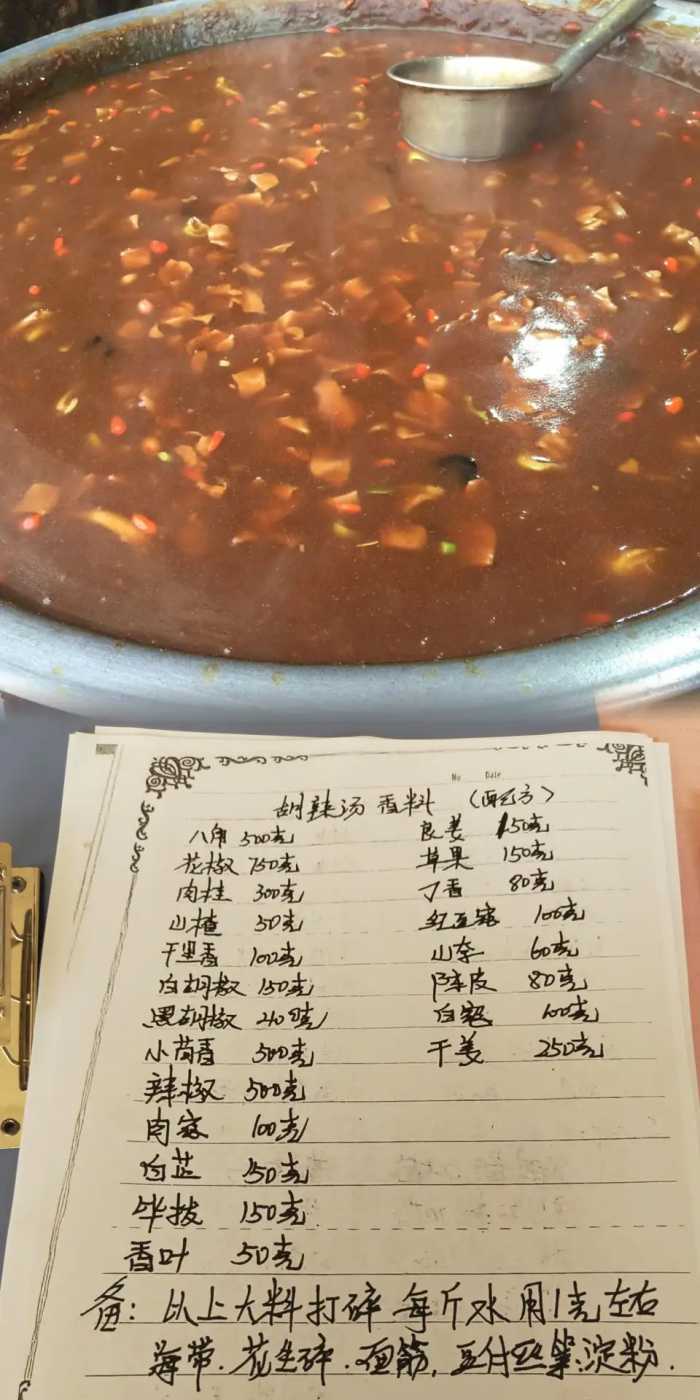 No Date
胡辣汤 香料 (配方)
八角 500克 良姜 150克
花椒 750克 草果 150克
肉桂 300克 丁香 80克
山楂 50克 红豆寇 100克
千里香 100克 山奈 60克
白胡椒 150克 陈皮 80克
黑胡椒 克 白寇 100克
小茴香 500克 干姜 250克
辣椒 500克
肉寇 100克
白芷 50克
毕拔 150克
香叶 50克
备: 以上大料打碎 每斤水用1克左右
海带.花生碎.面筋.豆付丝 淀粉.